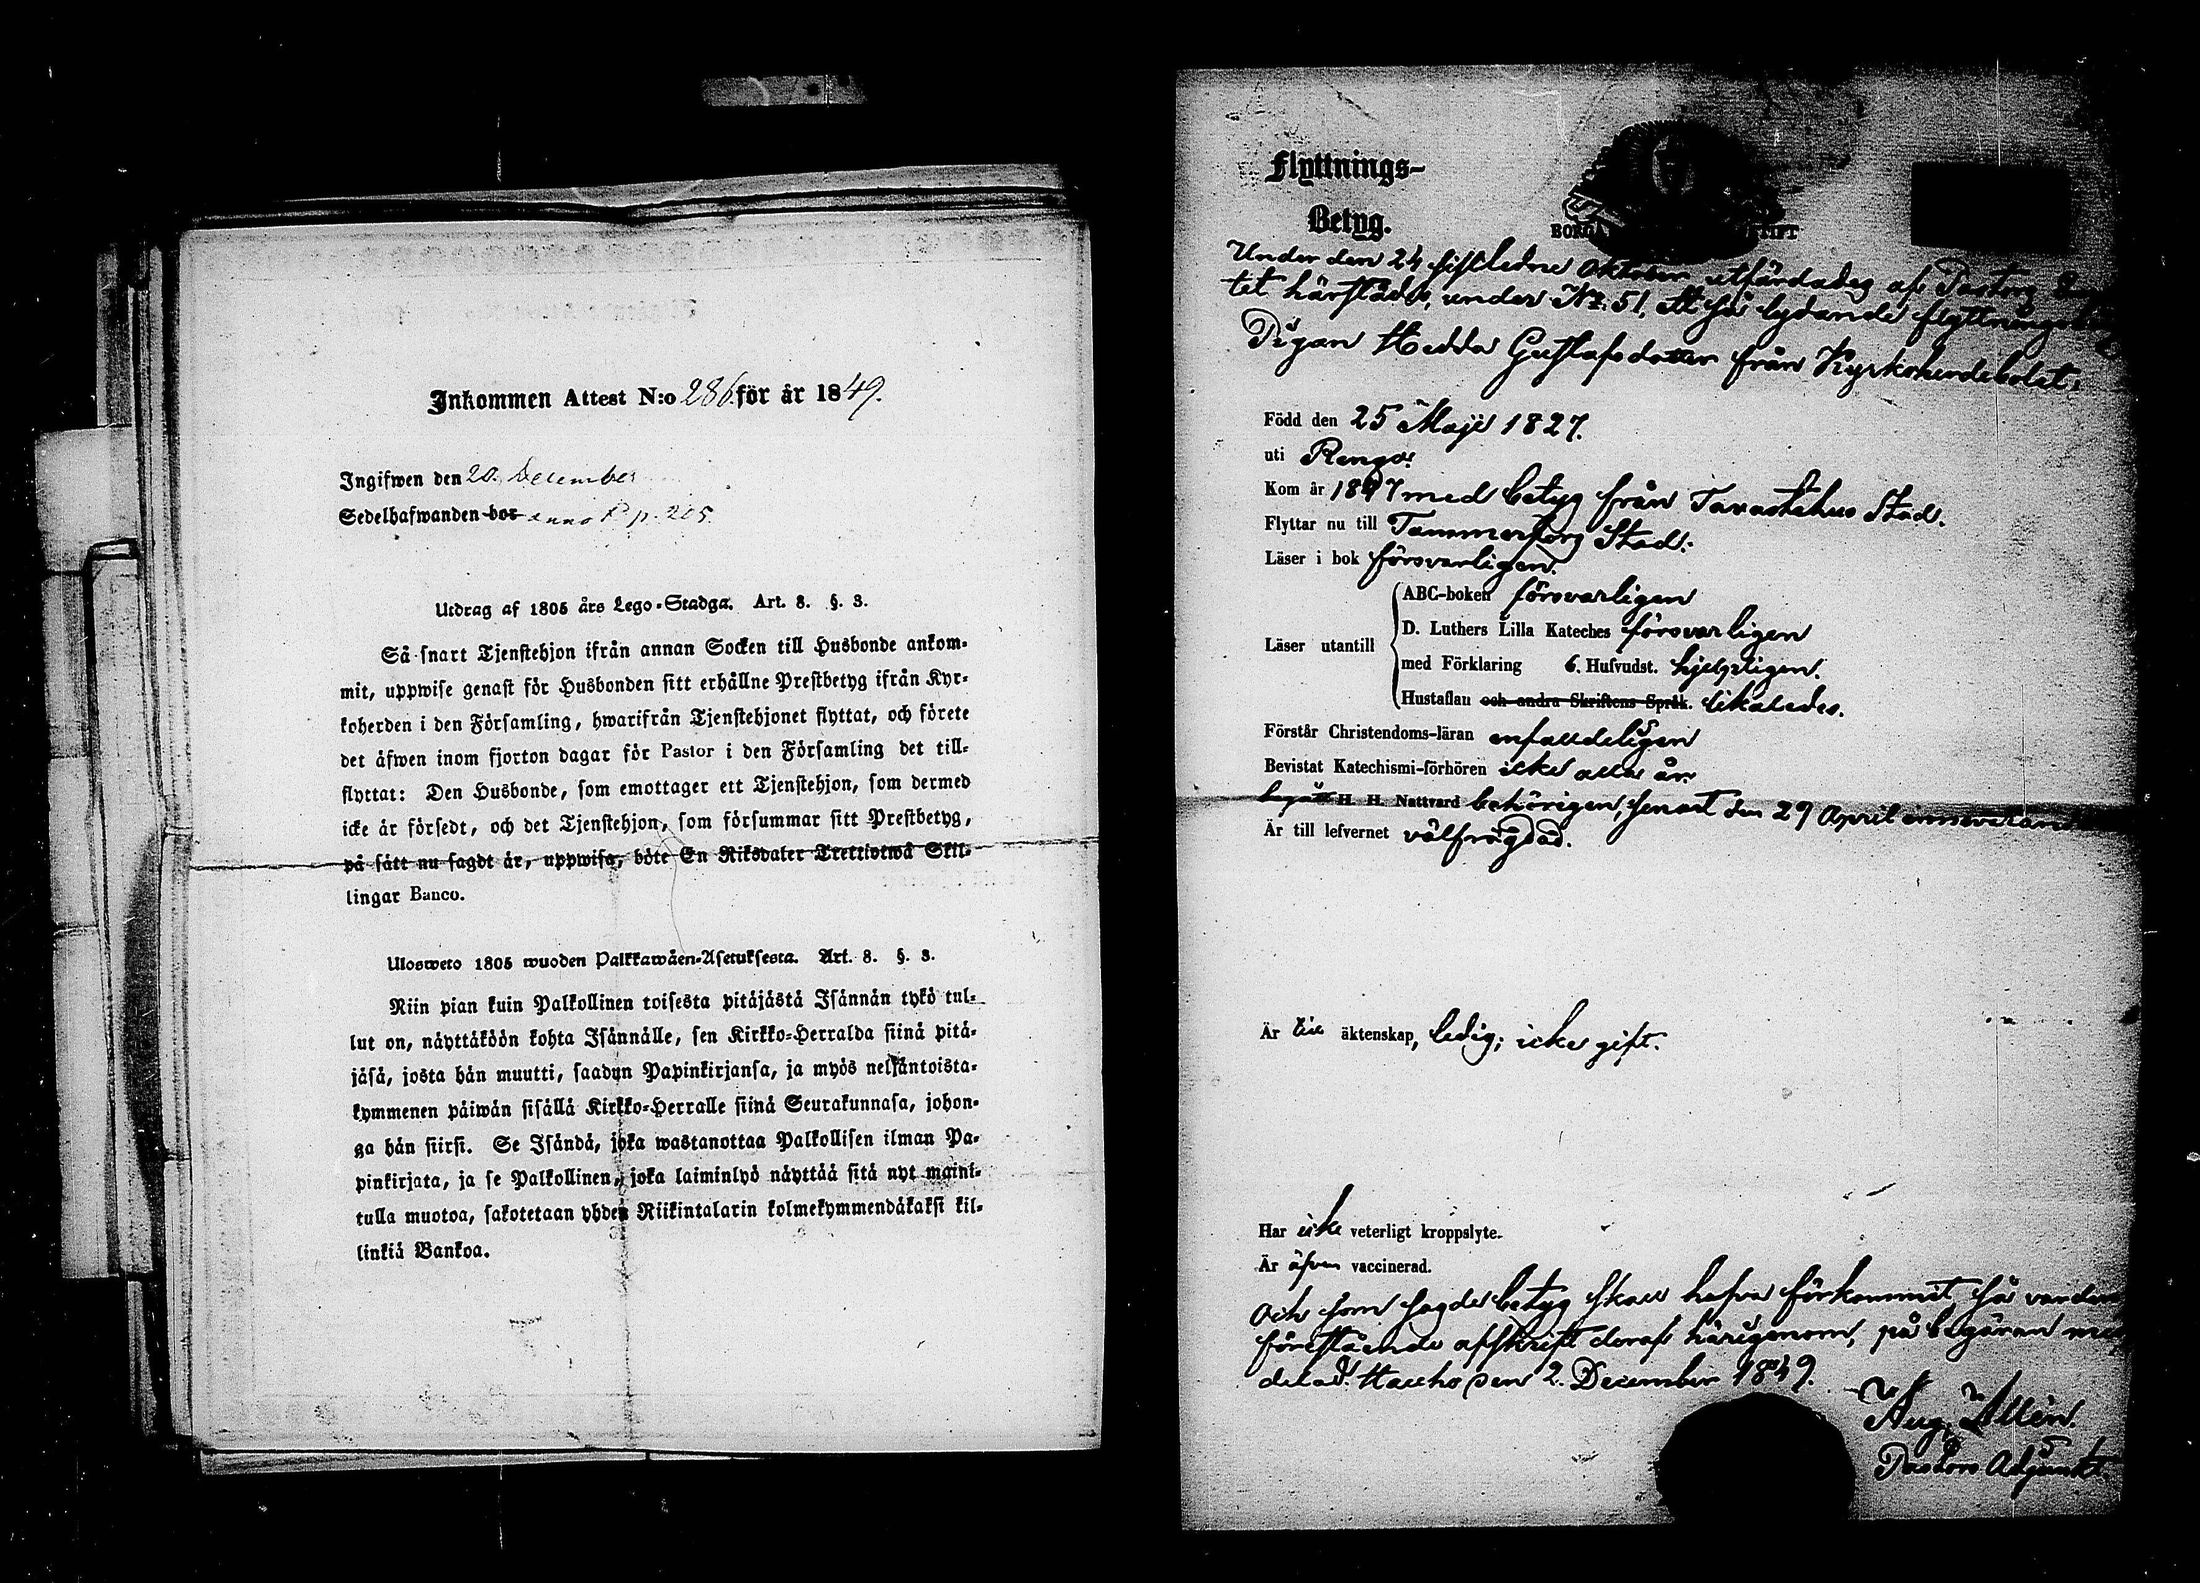 Inkommen Attest N:o 286. för år 1849.
Ingifwen den 20. December
Sedelhafwanden bor anno P. p. 205.
Utdrag af 1805 års Lego-Stadga. Art. 8. §. 3.
Så snart Tjenstehjon ifrån annan Socken till Husbonde ankom-
mit, uppwise genast för Husbonden sitt erhållne Prestbetyg ifrån Kyr-
koherden i den Församling, hwarifrån Tjenstehjonet flyttat, och förete
det äfwen inom fjorton dagar för Pastor i den Församling det till-
flyttat: Den Husbonde, som emottager ett Tjenstehjon, som dermed
icke är försedt, och det Tjenstehjon, som försummar sitt Prestbetyg,
på sätt nu sagdt är, uppwisa, böte En Riksdaler Trettiotwå Skil-
lingar Banco.
Ulosweto 1805 wuoden Palkkawäen-Asetuksesta. Art. 8. §. 3.
Niin pian kuin Palkollinen toisesta pitäjästä Isännän tykö tul-
lut on, näyttäköön kohta Isännälle, sen Kirkko-Herralda siinä pitä-
jäsä, josta hän muutti, saadun Papinkirjansa, ja myös neljäntoista-
kymmenen päiwän sisällä Kirkko-Herralle siinä Seurakunnasa, johon-
ga hän siirsi. Se Isändä, joka wastanottaa Palkollisen ilman Pa-
pinkirjata, ja se Palkollinen, joka laiminlyö näyttää sitä nyt maini-
tulla muotoa, sakotetaan yhden Riikintalarin kolmekymmendäkaksi kil-
linkiä Bankoa.
Flyttnings-
Betyg.
BORGÅ STIFT
Under den 24 sistledne Oktober utfärdades af Pastors
tet härstädes, under No. 51, ett så lydande flyttnings
Pigan Hedda Gustafsdotter från Kyrkoherdebolet,
Född den 25 Maji 1827.
uti Rengo.
Kom år 1847 med betyg från Tavastehus Stad.
Flyttar nu till Tammerfors Stad.
Läser i bok försvarligen.
Läser utantill
ABC-boken försvarligen
D. Luthers Lilla Kateches försvarligen
med Förklaring 6. Hufvudst. hjelpligen.
Hustaflan och andra Skriftens Språk. likaledes.
Förstår Christendoms-läran enfaldeligen
Bevistat Katechismi-förhören icke alla år.
begått H. H. Nattvard behörigen, senast den 29 April innevarande
Är till lefvernet välfrägdad.
Är till äktenskap, ledig; icke gift.
Har icke veterligt kroppslyte.
Är äfven vaccinerad.
Och som sagde betyg skall hafva förkommit så varder
förestående afskrift deraf härigenom, på begäran med
delad. Hauho den 2. December 1849.
Aug.
Pastors Adjunkt.